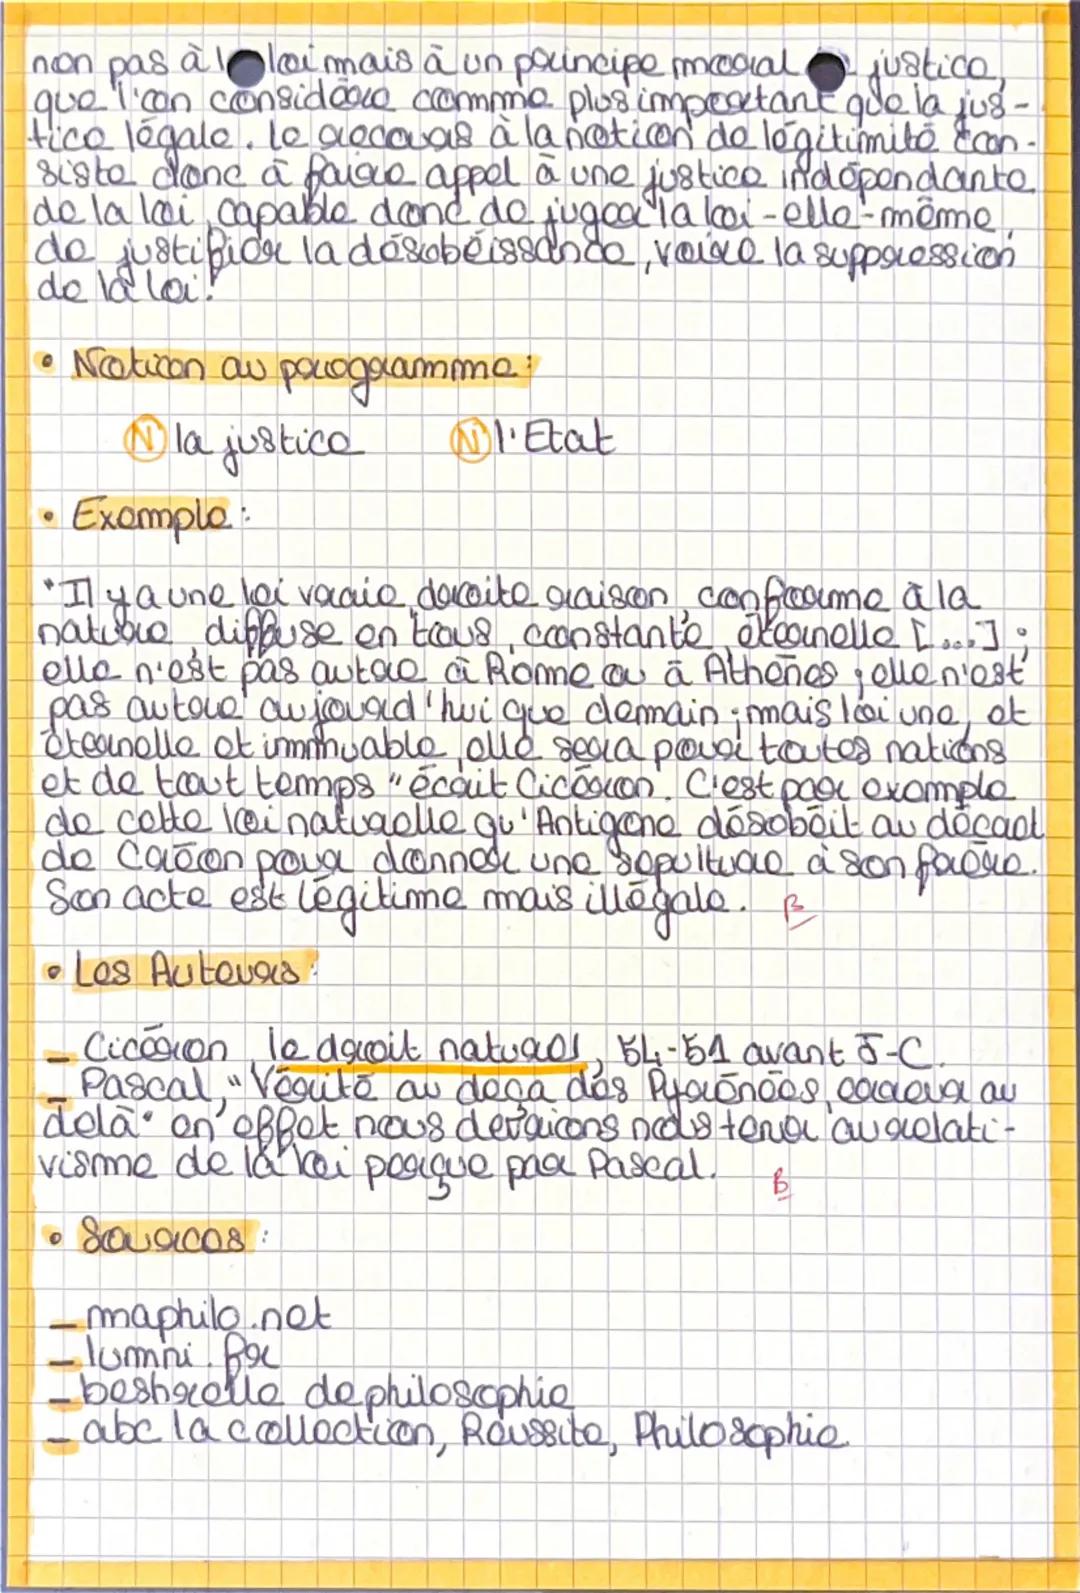 non pas à l loi mais à un principe moral justice,
que l'on considère comme plus important que la jus-
tice légale. Le recours à la notion de légitimité con-
siste donc à faire appel à une justice indépendante
de la loi, capable donc de juger la loi-elle-même,
de justifier la désobéissance, voire la suppression
de la loi.
• Notion au programme :
N la justice N l'Etat
• Exemple :
"Il y a une loi vraie, droite raison, conforme à la
nature, diffuse en tous, constante, éternelle [...] ;
elle n'est pas autre à Rome ou à Athènes ; elle n'est
pas autre aujourd'hui que demain ; mais loi une, et
éternelle et immuable, elle sera pour toutes nations
et de tout temps" écrit Cicéron. C'est par exemple
de cette loi naturelle qu'Antigone désobéit au décret
de Créon pour donner une sépulture à son frère.
Son acte est légitime mais illégale. B
• Les Auteurs :
- Cicéron, le droit naturel, 54-51 avant J-C.
- Pascal, "Vérité au deça des Pyrénées, erreur au
delà" en effet nous devrions nous tenir au relati-
visme de la loi perçue par Pascal. B
• Sources :
- maphilo.net
- lumni.fr
- beshrelle de philosophie
- abc la collection, Réussite, Philosophie